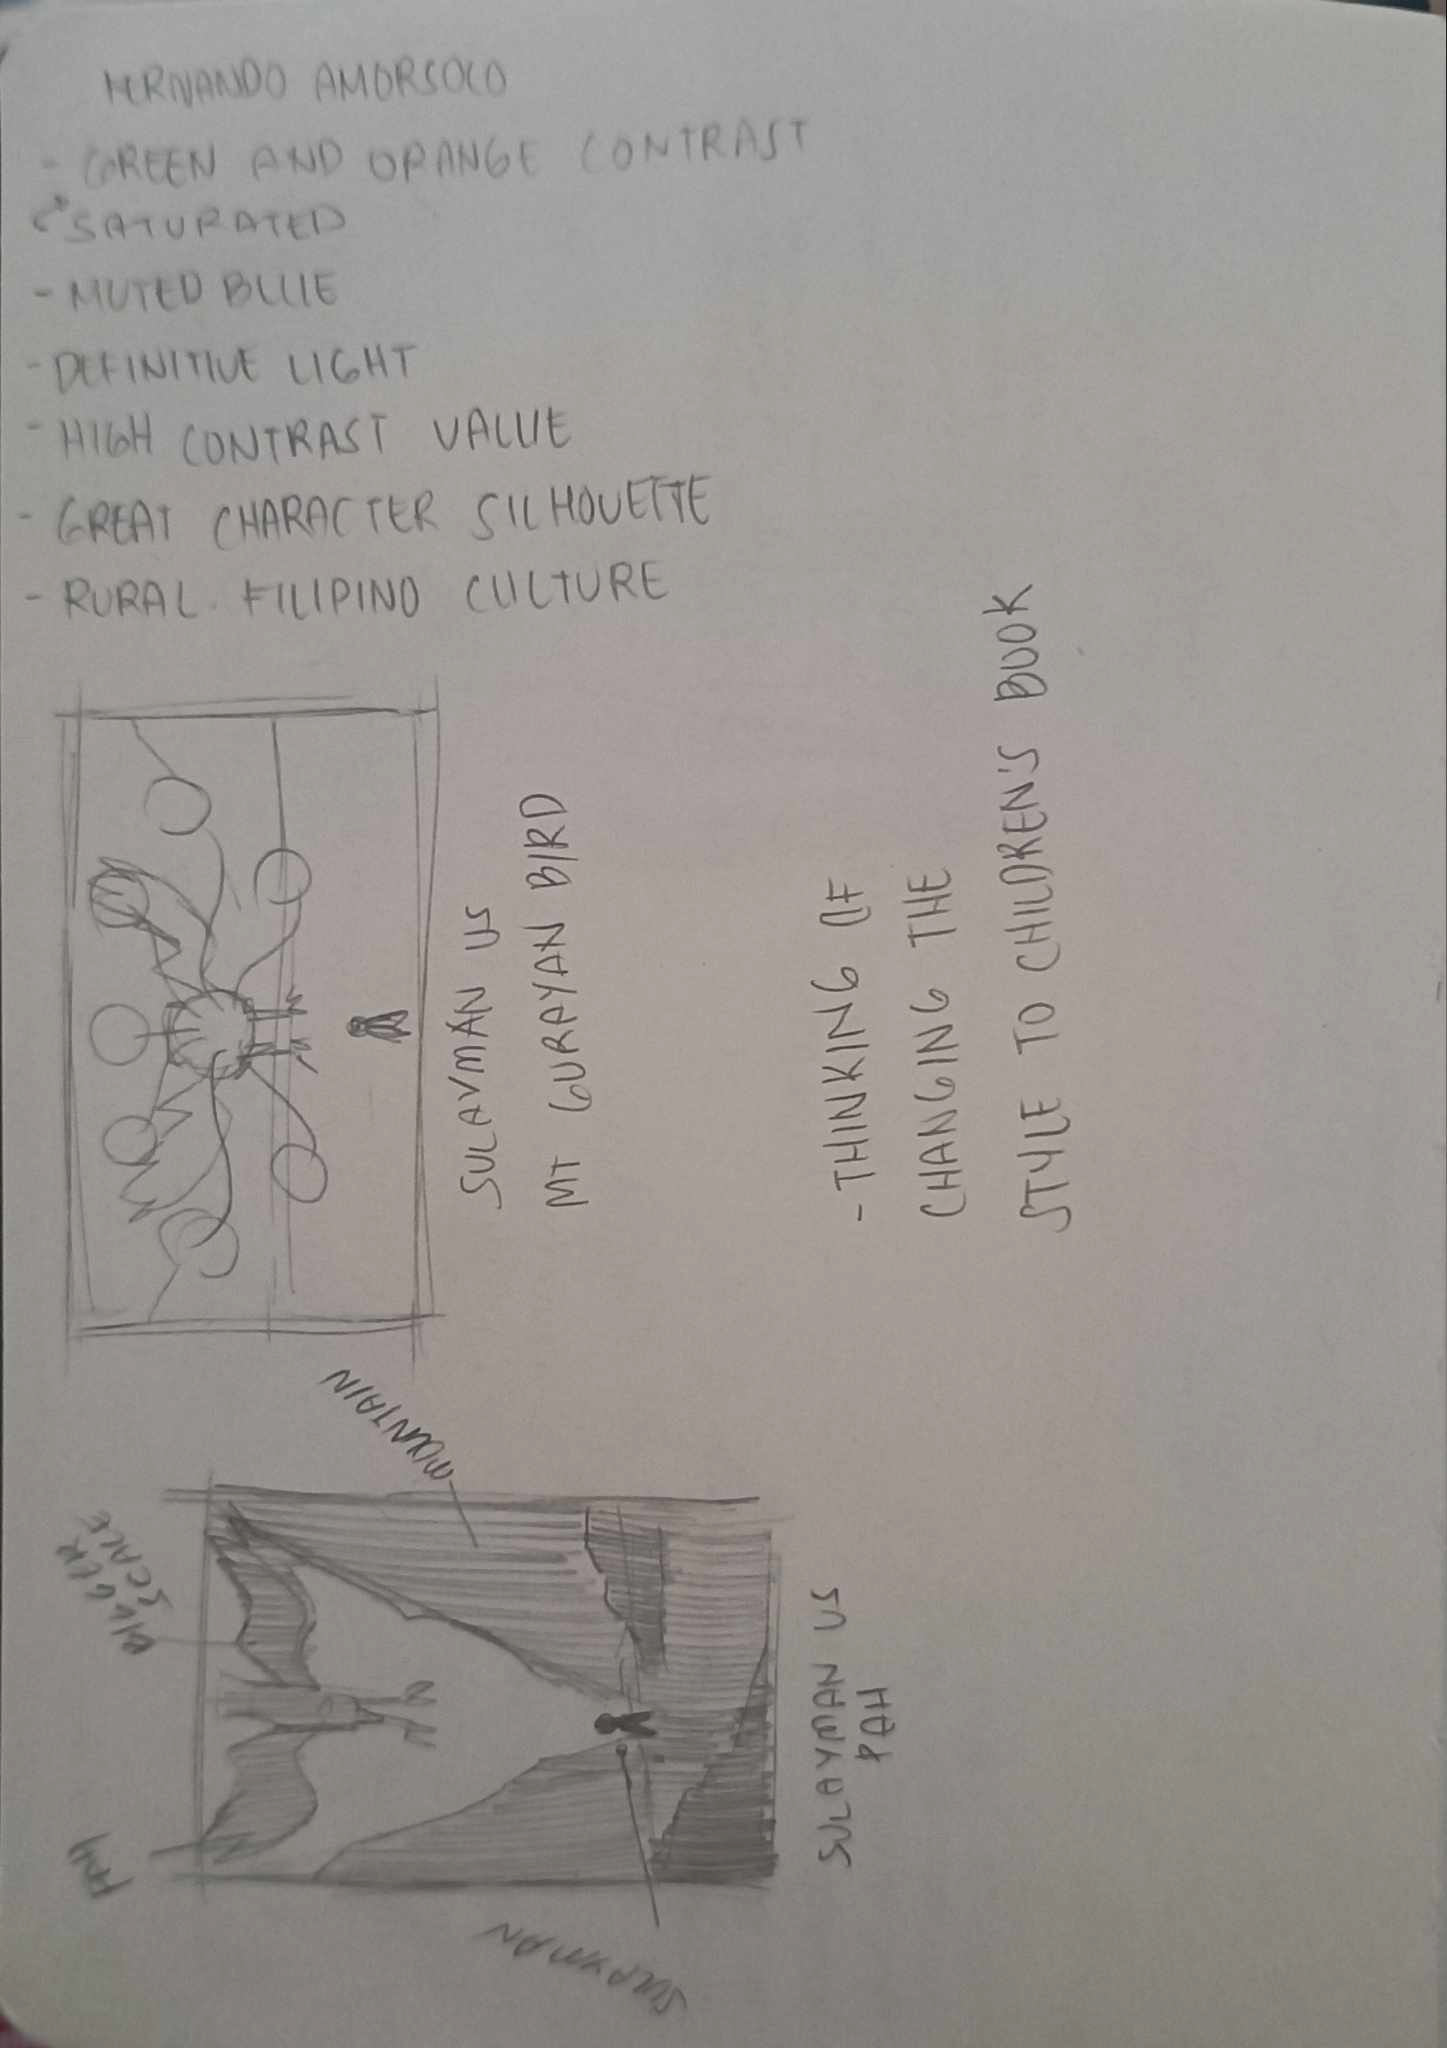 FERNANDO AMORSOLO
- GREEN AND ORANGE CONTRAST
SATURATED
- MUTED BLUE
- DEFINITIVE LIGHT
- HIGH CONTRAST VALUE
- GREAT CHARACTER SILHOUETTE
- RURAL FILIPINO CULTURE
SULAYMAN VS
MT GURAYAN BIRD
- THINKING OF
CHANGING THE
STYLE TO CHILDREN'S BOOK
MOUNTAIN
BIGGER
SCALE
PAH
SULAYMAN
SULAYMAN VS
PAH